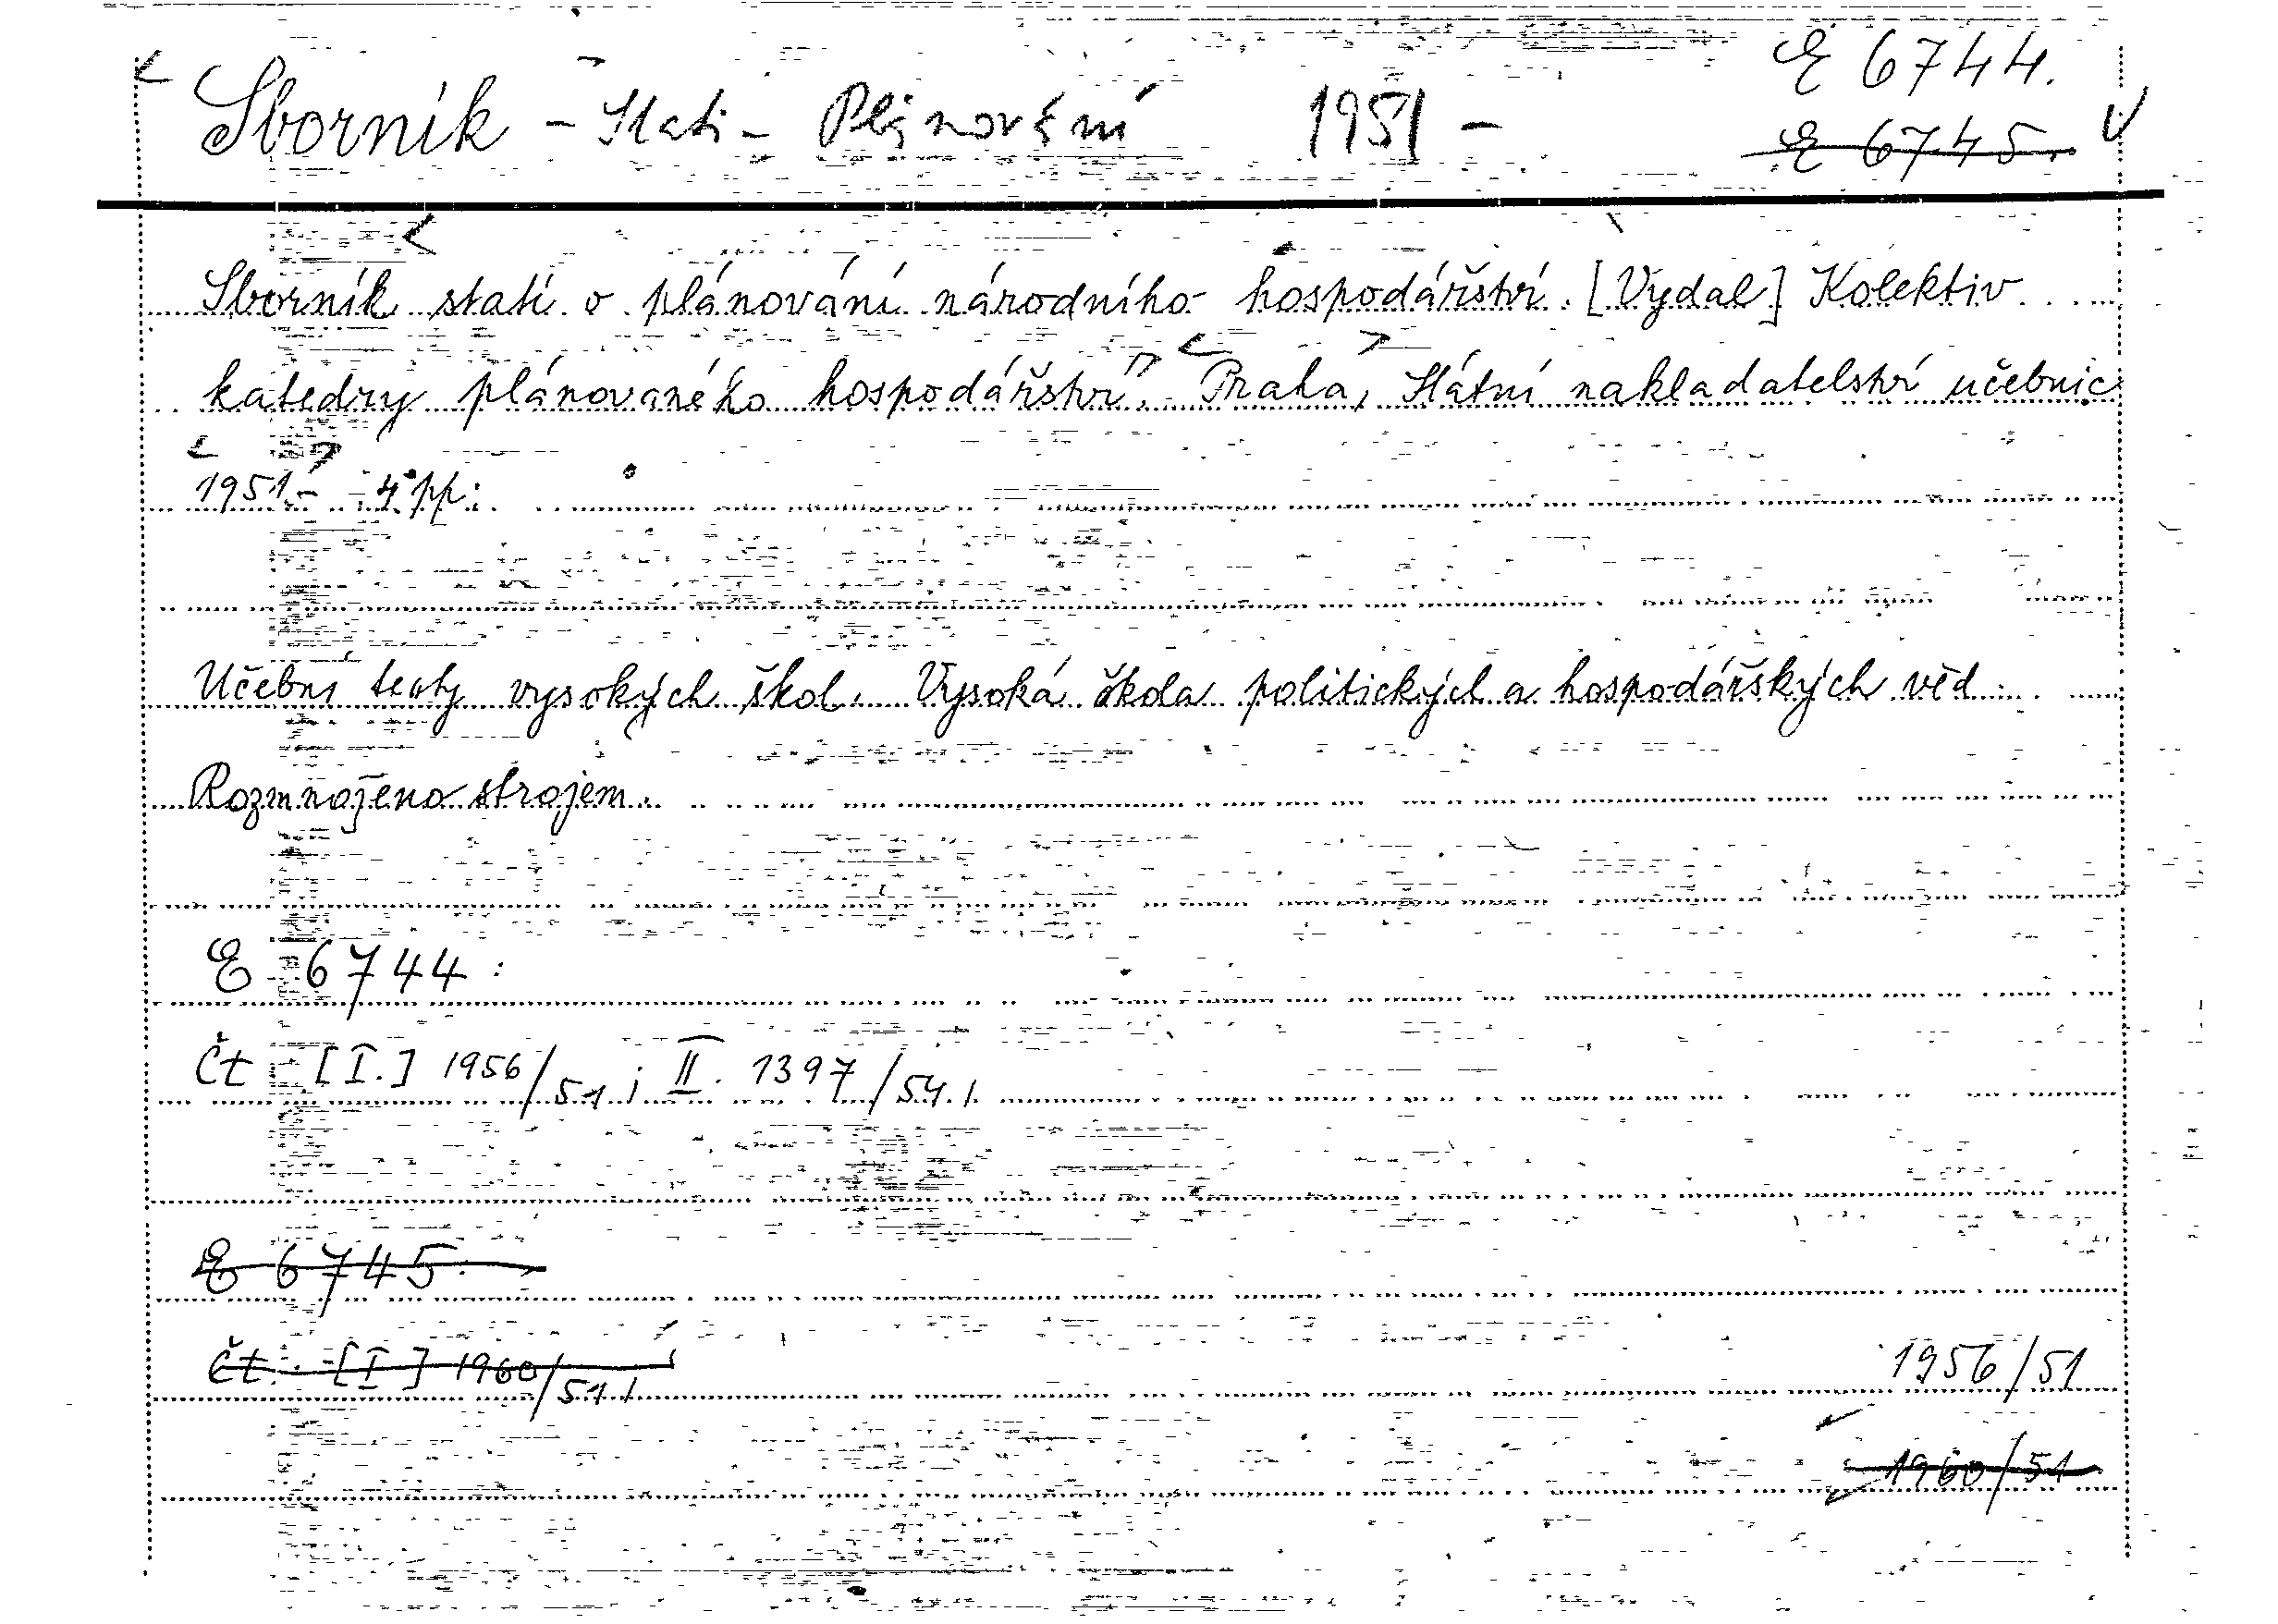 Sborník - Stati - Plánování 1951 - E 6744.
E 6745.
Sborník statí o plánování národního hospodářství. [Vydal] Kolektiv
katedry plánovaného hospodářství. Praha, Státní nakladatelství učebnic
1951- 4° pp.
Učební texty vysokých škol. Vysoká škola politických a hospodářských věd.
Rozmnoženo strojem.
E 6744:
Čt [I.] 1956/51; II. 1397/54.
E 6745:
Čt. [I] 1960/51
1956/51
1960/51